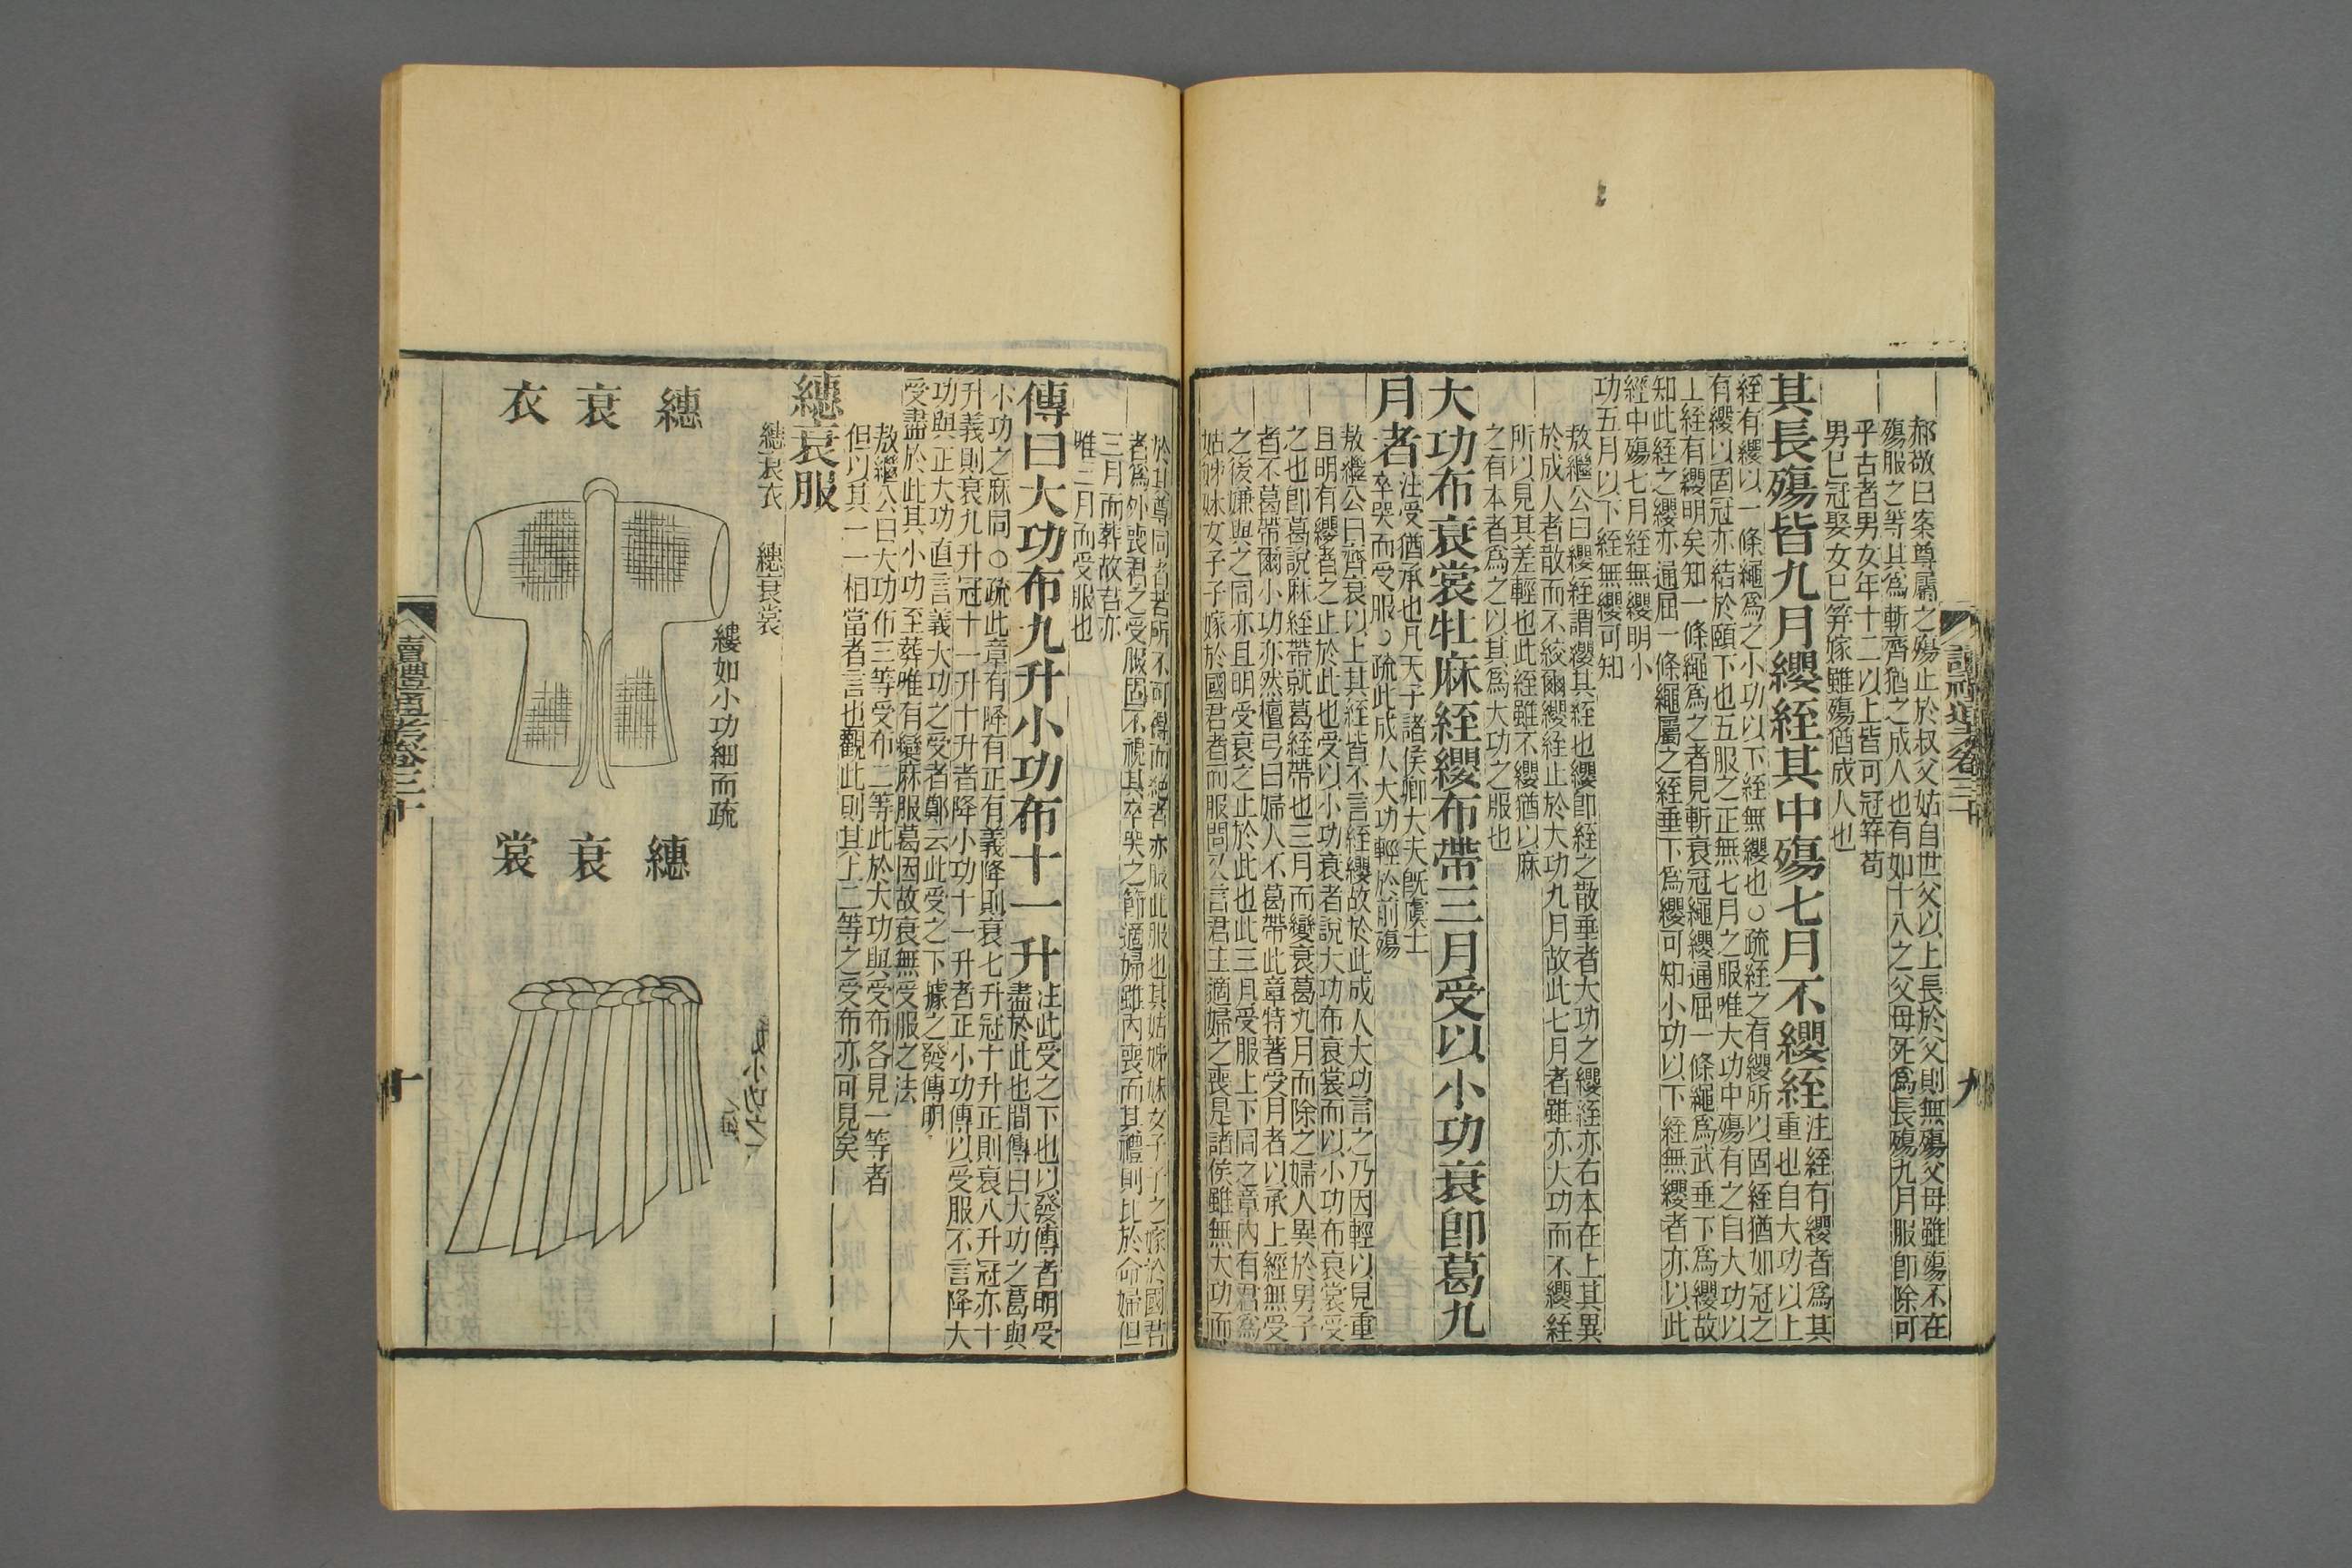 郝敬曰案尊屬之殤止於叔父姑自世父以上長於父則無殤父母雖殤不在
殤服之等其爲斬齊猶之成人也有如十八之父母死爲長殤九月服卽除可
乎古者男女年十二以上皆可冠筓苟
男已冠娶女已筓嫁雖殤猶成人也
其長殤皆九月纓絰其中殤七月不纓絰
注絰有纓者爲其
重也自大功以上
絰有纓以一條繩爲之小功以下絰無纓也○疏絰之有纓所以固絰猶如冠之
有纓以固冠亦結於頤下也五服之正無七月之服唯大功中殤有之自大功以
上絰有纓明矣知一條繩爲之者見斬衰冠繩纓通屈一條繩爲武垂下爲纓故
知此絰之纓亦通屈一條繩屬之絰垂下爲纓可知小功以下絰無纓者亦以此
經中殤七月絰無纓明小
功五月以下絰無纓可知
敖繼公曰纓絰謂纓其絰也纓卽絰之散垂者大功之纓絰亦右本在上其異
於成人者散而不絞爾纓絰止於大功九月故此七月者雖亦大功而不纓絰
所以見其差輕也此絰雖不纓猶以麻
之有本者爲之以其爲大功之服也
大功布衰裳牡麻絰纓布帶三月受以小功衰卽葛九
月者
注受猶承也凡天子諸侯卿大夫旣虞士
卒哭而受服○疏此成人大功輕於前殤
敖繼公曰齊衰以上其絰皆不言絰纓故於此成人大功言之乃因輕以見重
且明有纓者之止於此也受以小功衰者說大功布衰裳而以小功布衰裳受
之也卽葛說麻絰帶就葛絰帶也三月而變衰葛九月而除之婦人異於男子
者不葛帶爾小功亦然檀弓曰婦人不葛帶此章特著受月者以承上經無受
之後嫌與之同亦且明受衰之止於此也此三月受服上下同之章內有君爲
姑姊妹女子子嫁於國君者而服問又言君主適婦之喪是諸侯雖無大功而
於其尊同者若所不可傳而絕者亦服此服也其姑姊妹女子子之嫁於國君
者爲外喪君之受服固不視其卒哭之節適婦雖內喪而其禮則比於命婦但
三月而葬故君亦
唯三月而受服也
傳曰大功布九升小功布十一升
注此受之下也以發傳者明受
盡於此也間傳曰大功之葛與
小功之麻同○疏此章有降有正有義降則衰七升冠十升正則衰八升冠亦十
升義則衰九升冠十一升十升者降小功十一升者正小功傳以受服不言降大
功與正大功直言義大功之受者鄭云此受之下據之發傳明
受盡於此其小功至葬唯有變麻服葛因故衰無受服之法
敖繼公曰大功布三等受布二等此於大功與受布各見一等者
但以其一一相當者言也觀此則其上二等之受布亦可見矣
繐衰服
繐衰衣　繐衰裳
繐衰衣
縷如小功細而疏
繐衰裳
讀禮通考卷三十
九
讀禮通考卷三十
十